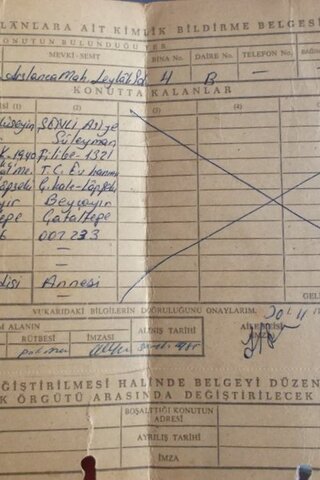 LANLARA AİT KİMLİK BİLDİRME BELGESİ
KONUTUN BULUNDUĞU YER
MEVKİ-SEMT BINA NO DAİRE NO TELEFON NO.
Arslanca Mah. 4 B —
KONUTTA KALANLAR
(1) (2) (3) (4)
Hüseyin ŞENLİ Asiye
Süleyman
1940 Filibe-1321
T.C. Ev hanımı
Lâpseki Ç.kale-Lâpseki
Beyçayır
tepe Çataltepe
6 007 233
—
—
disi Annesi
YUKARIDAKİ BİLGİLERİN DOĞRULUĞUNU ONAYLARIM.
M ALANIN ALINIŞ TARİHİ
RÜTBESİ İMZASI İMZA
EĞİŞTİRİLMESİ HALİNDE BELGEYİ DÜZEN
K ÖRGÜTÜ ARASINDA DEĞİŞTİRİLECEK
BOŞALTTIĞI KONUTUN
ADRESİ
AYRILIŞ TARİHİ
İMZA